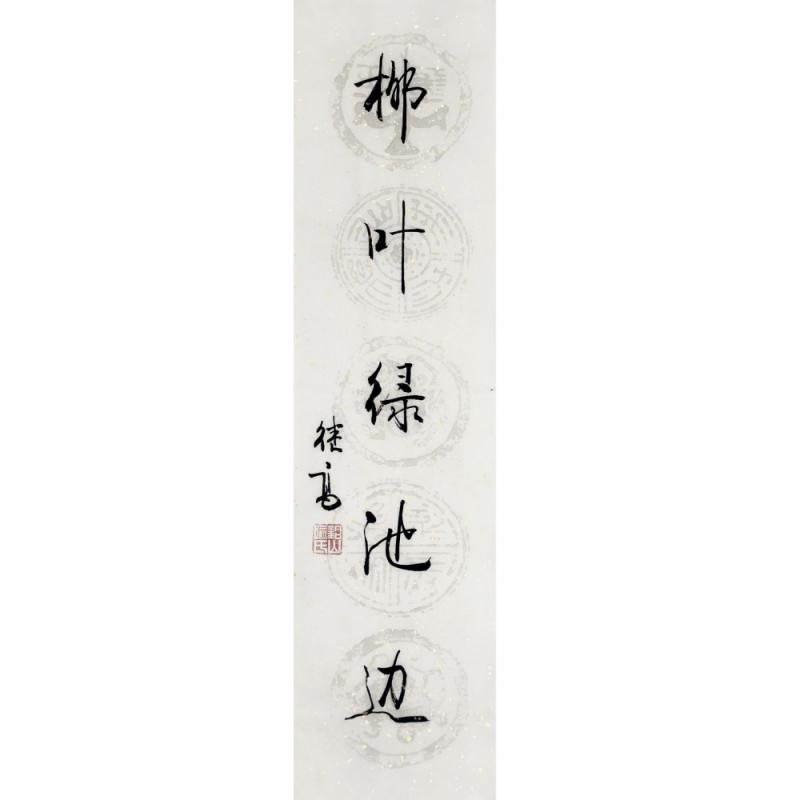 柳叶绿池边
继高